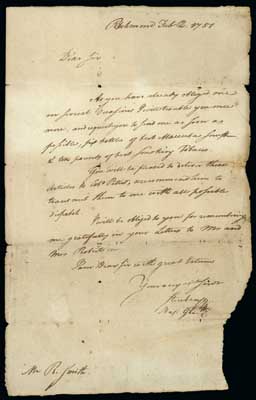 Richmond Feb 12. 1781
Dear Sir
As you have already obliged me
on several Occasions I will trouble you once
more, and request you to send me as soon as
possible, six bottles of best Maccubau Snuff
& ten pounds of best Smoking Tobacco
You will be pleased to deliver these
Articles to Colo. Pettit, & recommend him to
transmit them to me with all possible
dispatch.
I will be obliged to you for remembering
me gratefully in your Letters to Mr and
Mrs
I am Dear Sir with great Esteem
Your
Steuben
Maj. Genl.
Mr R. Smith.